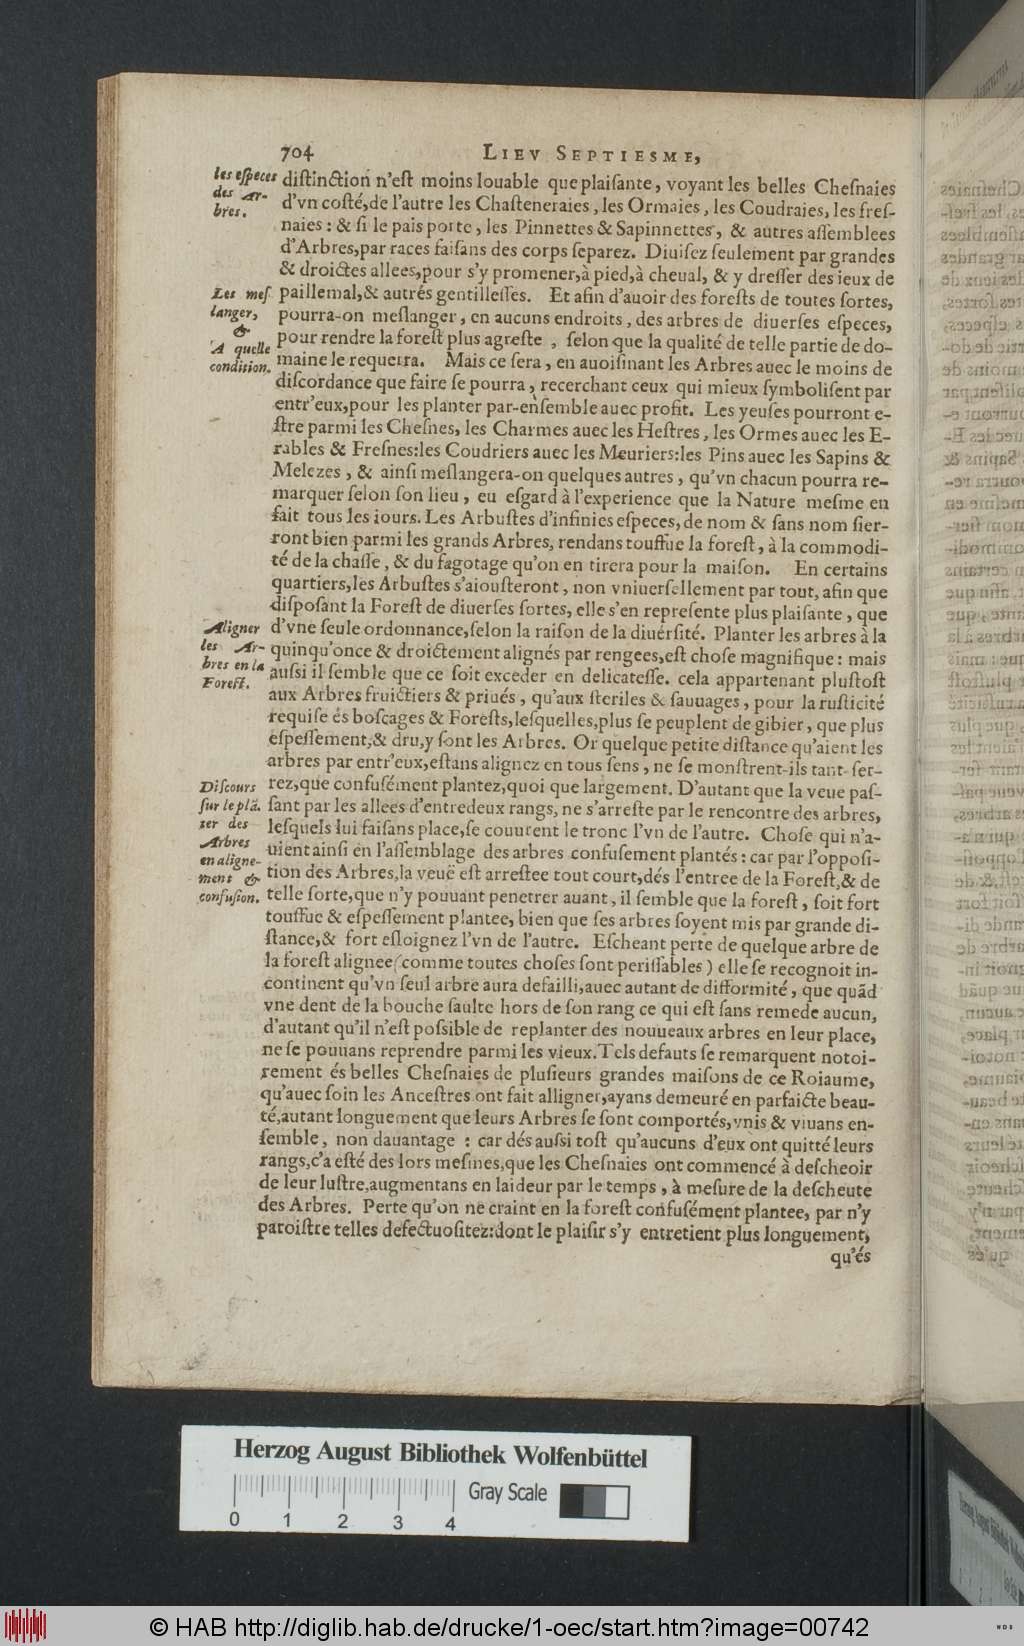 704 LIEV SEPTIESME,
les especes
des Ar-
bres.
distinction n'est moins louable que plaisante, voyant les belles Chesnaies
d'vn costé, de l'autre les Chasteneraies, les Ormaies, les Coudraies, les fres-
naies : & si le pais porte, les Pinnettes & Sapinnettes, & autres assemblees
d'Arbres, par races faisans des corps separez. Diuisez seulement par grandes
& droictes allees, pour s'y promener, à pied, à cheual, & y dresser des ieux de
Les mes
langer,
&
A quelle
condition.
paillemal, & autrés gentillesses. Et afin d'auoir des forests de toutes sortes,
pourra-on meslanger, en aucuns endroits, des arbres de diuerses especes,
pour rendre la forest plus agreste, selon que la qualité de telle partie de do-
maine le requerra. Mais ce sera, en auoisinant les Arbres auec le moins de
discordance que faire se pourra, recerchant ceux qui mieux symbolisent par
entr'eux, pour les planter par-ensemble auec profit. Les yeuses pourront e-
stre parmi les Chesnes, les Charmes auec les Hestres, les Ormes auec les E-
rables & Fresnes: les Coudriers auec les Meuriers: les Pins auec les Sapins &
Melezes, & ainsi meslangera-on quelques autres, qu'vn chacun pourra re-
marquer selon son lieu, eu esgard à l'experience que la Nature mesme en
fait tous les iours. Les Arbustes d'infinies especes, de nom & sans nom sier-
ront bien parmi les grands Arbres, rendans touffue la forest, à la commodi-
té de la chasse, & du fagotage qu'on en tirera pour la maison. En certains
quartiers, les Arbustes s'aiousteront, non vniuersellement par tout, afin que
disposant la Forest de diuerses sortes, elle s'en represente plus plaisante, que
Aligner
les Ar-
bres en la
Forest.
d'vne seule ordonnance, selon la raison de la diuérsité. Planter les arbres à la
quinqu'once & droictement alignés par rengees, est chose magnifique: mais
aussi il semble que ce soit exceder en delicatesse. cela appartenant plustost
aux Arbres fruictiers & priués, qu'aux steriles & sauuages, pour la rusticité
requise és boscages & Forests, lesquelles, plus se peuplent de gibier, que plus
espessement, & dru, y sont les Arbres. Or quelque petite distance qu'aient les
arbres par entr'eux, estans alignez en tous sens, ne se monstrent-ils tant ser-
Discours
sur le plã.
ter des
Arbres
en aligne-
ment &
confusion.
rez, que confusément plantez, quoi que largement. D'autant que la veue pas-
sant par les allees d'entredeux rangs, ne s'arreste par le rencontre des arbres,
lesquels lui faisans place, se couurent le tronc l'vn de l'autre. Chose qui n'a-
uient ainsi en l'assemblage des arbres confusement plantés: car par l'opposi-
tion des Arbres, la veuë est arrestee tout court, dés l'entree de la Forest, & de
telle sorte, que n'y pouuant penetrer auant, il semble que la forest, soit fort
touffue & espessement plantee, bien que ses arbres soyent mis par grande di-
stance, & fort esloignez l'vn de l'autre. Escheant perte de quelque arbre de
la forest alignee (comme toutes choses sont perissables) elle se recognoit in-
continent qu'vn seul arbre aura defailli, auec autant de difformité, que quãd
vne dent de la bouche saulte hors de son rang ce qui est sans remede aucun,
d'autant qu'il n'est possible de replanter des nouueaux arbres en leur place,
ne se pouuans reprendre parmi les vieux. Tels defauts se remarquent notoi-
rement és belles Chesnaies de plusieurs grandes maisons de ce Roiaume,
qu'auec soin les Ancestres ont fait alligner, ayans demeuré en parfaicte beau-
té, autant longuement que leurs Arbres se sont comportés, vnis & viuans en-
semble, non dauantage : car dés aussi tost qu'aucuns d'eux ont quitté leurs
rangs, c'a esté des lors mesmes, que les Chesnaies ont commencé à descheoir
de leur lustre, augmentans en laideur par le temps, à mesure de la descheute
des Arbres. Perte qu'on ne craint en la forest confusément plantee, par n'y
paroistre telles defectuositez: dont le plaisir s'y entretient plus longuement,
qu'és
Herzog August Bibliothek Wolfenbüttel
Gray Scale
0 1 2 3 4
© HAB http://diglib.hab.de/drucke/1-oec/start.htm?image=00742